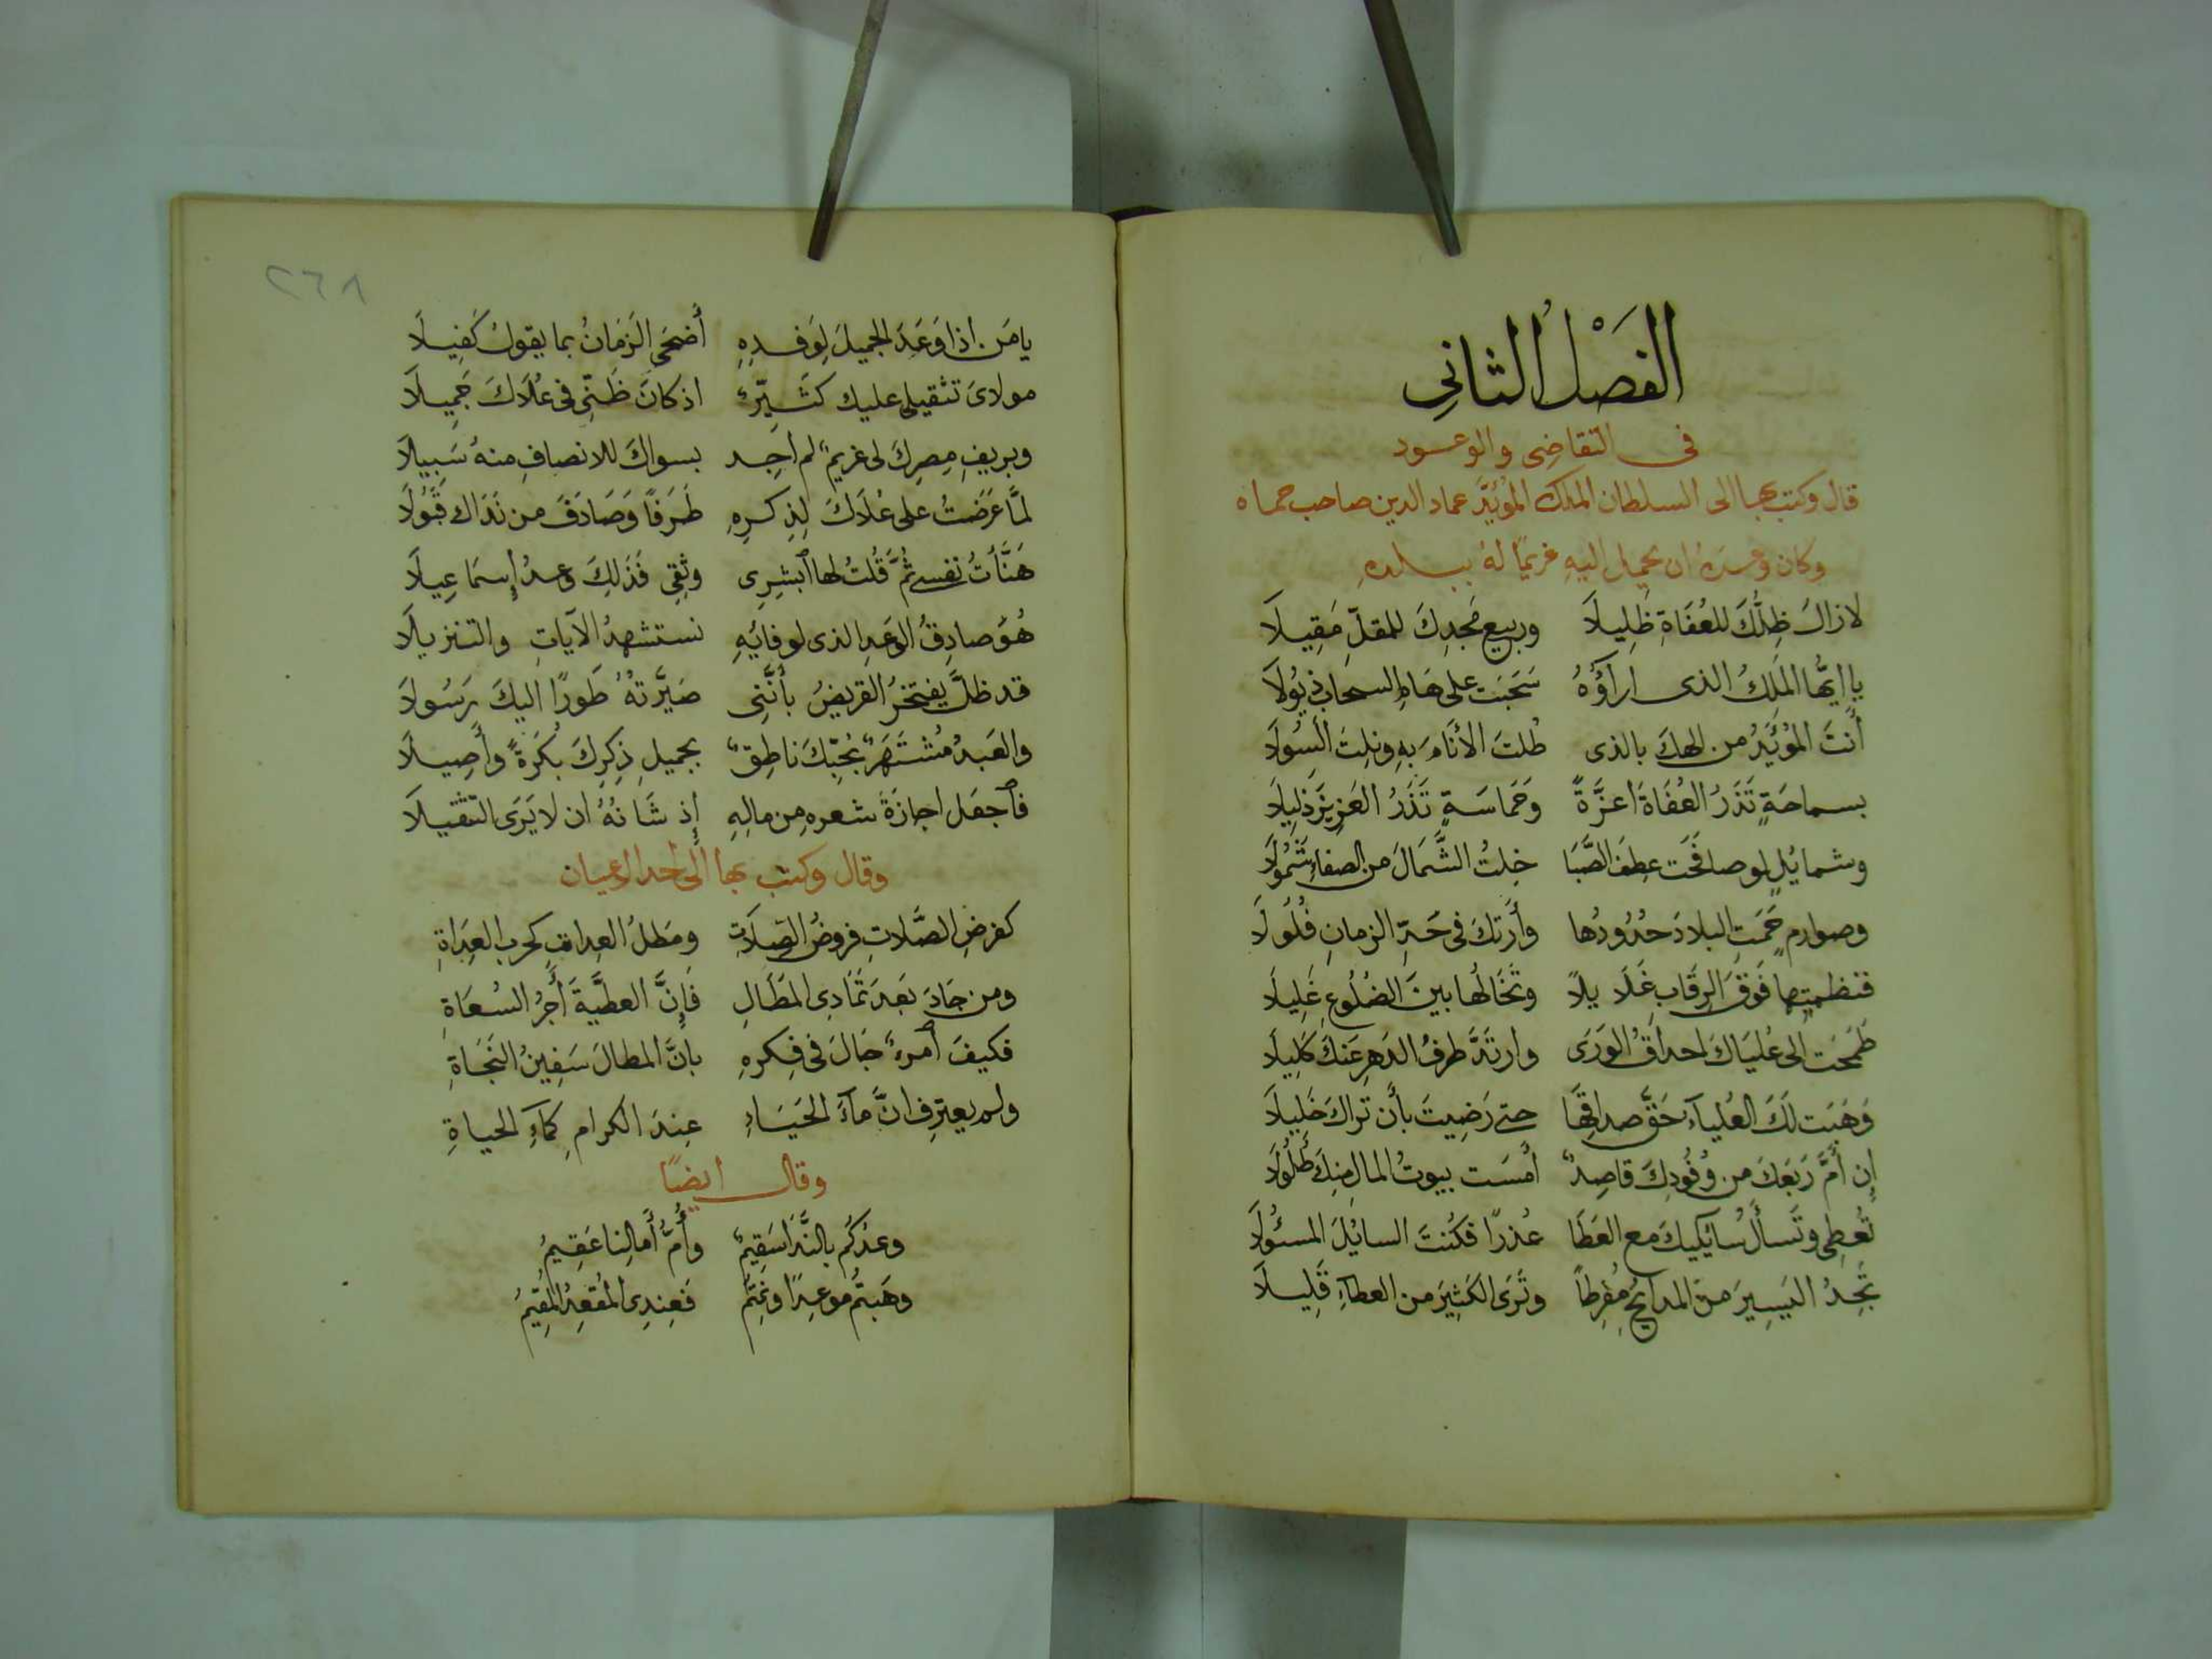 الفَصْلُ الثانِى
فى التقاضِى والوعود
قال وكتب بها الى السلطان الملك المؤيَّد عماد الدين صاحب حماه
وكان وعده ان يحيل اليهِ غريمًا لهُ ببلدهِ
لازالَ ظِلُّكَ للعُفَاةِ ظَلِيلَا وربيع مَجدِكَ للمقلّ مَقِيلَا
يا ايُّها المَلكُ الذى اراؤُهُ سَحَبَت على هَامِ السحاب ذيُولَا
أنتَ المُؤيَّدُ من الهكَ بالذى طُلتَ الأنَامَ بهِ ونلِتَ السُولَا
بسماحَةٍ تَذَرُ العُفَاةَ اعزَّةً وَحَماسَةٍ تَذَرُ العَزِيزَ ذلِيلَا
وشمايُلٍ لو صافَحَت عِطفَ الصَّبَا خِلتُ الشَّمَالَ من الصفاءِ شَمُولَا
وصوارمٍ حَمَتِ البلادَ حُدُودُها وأرَتكَ فى حَدِّ الزمانِ فُلُولَا
فنظمتها فَوقَ الرِقَابِ غَلَا يلًا وتَخَالُها بينَ الضُلُوعِ غَلِيلَا
طَمحَت الى عُليَاكَ احداقُ الوَرَى وارتَدَّ طرفُ الدَهرِ عَنكَ كلِيلَا
وَهَبَت لَكَ العُلياءُ حَقَّ صداقِهَا حتى رَضِيتَ بأن تراكَ خَلِيلَا
إن أمَّ رَبعَكَ من وُفُودِكَ قاصِدٌ أمْسَت بيوتُ المالِ مِنكَ طُلُولَا
تُعطِى وتَسألُ سُائليكَ مع العَطَا عُذرًا فكُنتَ السايُلَ المسئُولَا
تَجِدُ اليَسِيرَ مِنَ المدايحِ مُفرِطاً وتَرَى الكَثِيرَ من العطاءِ قَلِيلَا
٢٦٨
يا مَن اذا وَعَدَ الجميلَ لِوَفدِهِ أضحَى الزَمَانُ بما يقولُ كَفِيلَا
مولاىَ تثقيلى عليك كَثَيِّرٌ اذ كانَ ظَنِّى فى عُلَاكَ جَمِيلَا
وبريفِ مِصرِكَ لى غريمٌ لم اجِد بسواكَ للانصافِ منهُ سَبِيلَا
لمَّا عَرَضتُ على عُلَاكَ لِذِكرِهِ طَرَفًا وَصَادَفَ من نَدَاكَ قَبُولَا
هَنَّأتُ نفسى ثُمَّ قُلتُ لها ٱبشِرِى وثِقِى فَذَلِكَ وعدُ إسمَاعِيلَا
هُوَ صادِقُ الوَعدِ الذى لوفائِهِ نستشهدُ الآياتِ والتنزيلَا
قد ظلَّ يفتخرُ القريضُ بأنَّنِى صَيَّرتُهُ طَورًا اليكَ رَسُولَا
والعَبدُ مُشتَهَرٌ بحُبِّكَ ناطِقٌ بجميلِ ذِكرِكَ بُكرَةً وأصِيلَا
فٱجعَل اجازَةَ شعرهِ مِن مالِهِ إذ شَانُهُ ان لا يَرَى التّثقيلَا
وقال وكتب بها الى احد الاعيان
كفرضِ الصَّلاتِ فروضُ الصِلَاتِ ومَطلُ العِداتِ كحربِ العِدَاةِ
ومن جَادَ بَعدَ تَمَادِى المَطَالِ فَإنَّ العطيَّةَ أجرُ السُعَاةِ
فكيفَ ٱمرءٌ جَالَ فى فِكرهِ بانَّ المطالَ سَفِينُ النَجَاةِ
ولم يعترِف انَّ مآءَ الحَيَاءِ عِندَ الكرامِ كمَاءِ الحياةِ
وقال ايضًا
وعدُكُم بالنَّدَا سَقِيمٌ وأُمُّ أمالِنا عَقِيمُ
وهَبتُم موعِدًا ونمتُم فَعِندِى المُقعِدُ المُقِيمُ